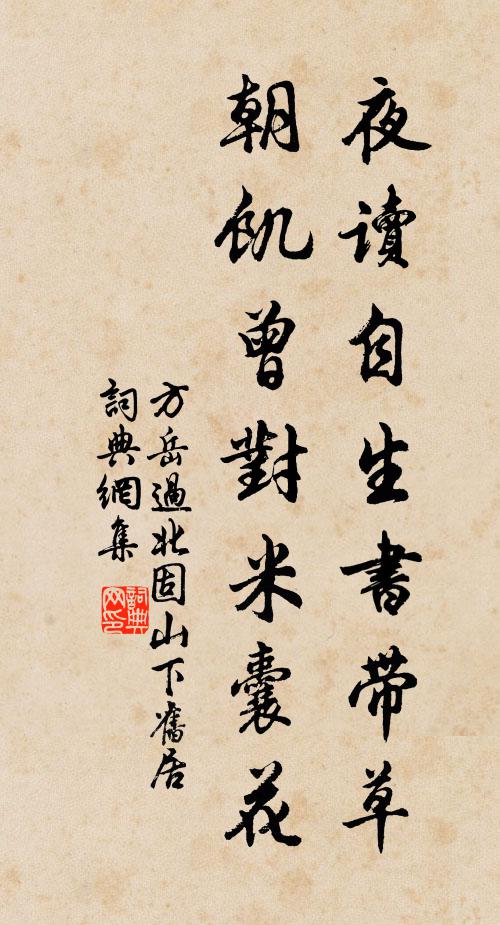 夜讀自生書帶草
朝飢曾對米囊花
方岳過北固山下舊居
詞典網集
詞典
网印